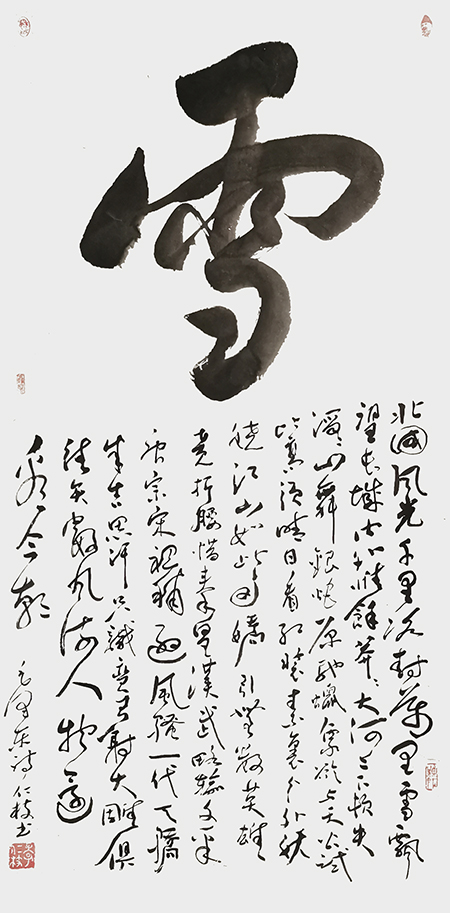 雪
北國风光千里冰封萬里雪飘
望长城内外惟餘莽々大河上下顿失
滔々山舞銀蛇原驰蠟象欲与天公试
比高须晴日看红装素裹分外妖
娆江山如此多嬌引無数英雄
竞折腰惜秦皇漢武略输文采
唐宗宋祖稍逊风骚一代天骄
成吉思汗只識弯弓射大雕俱
往矣數风流人物还
看今朝
毛泽东诗仁枝书